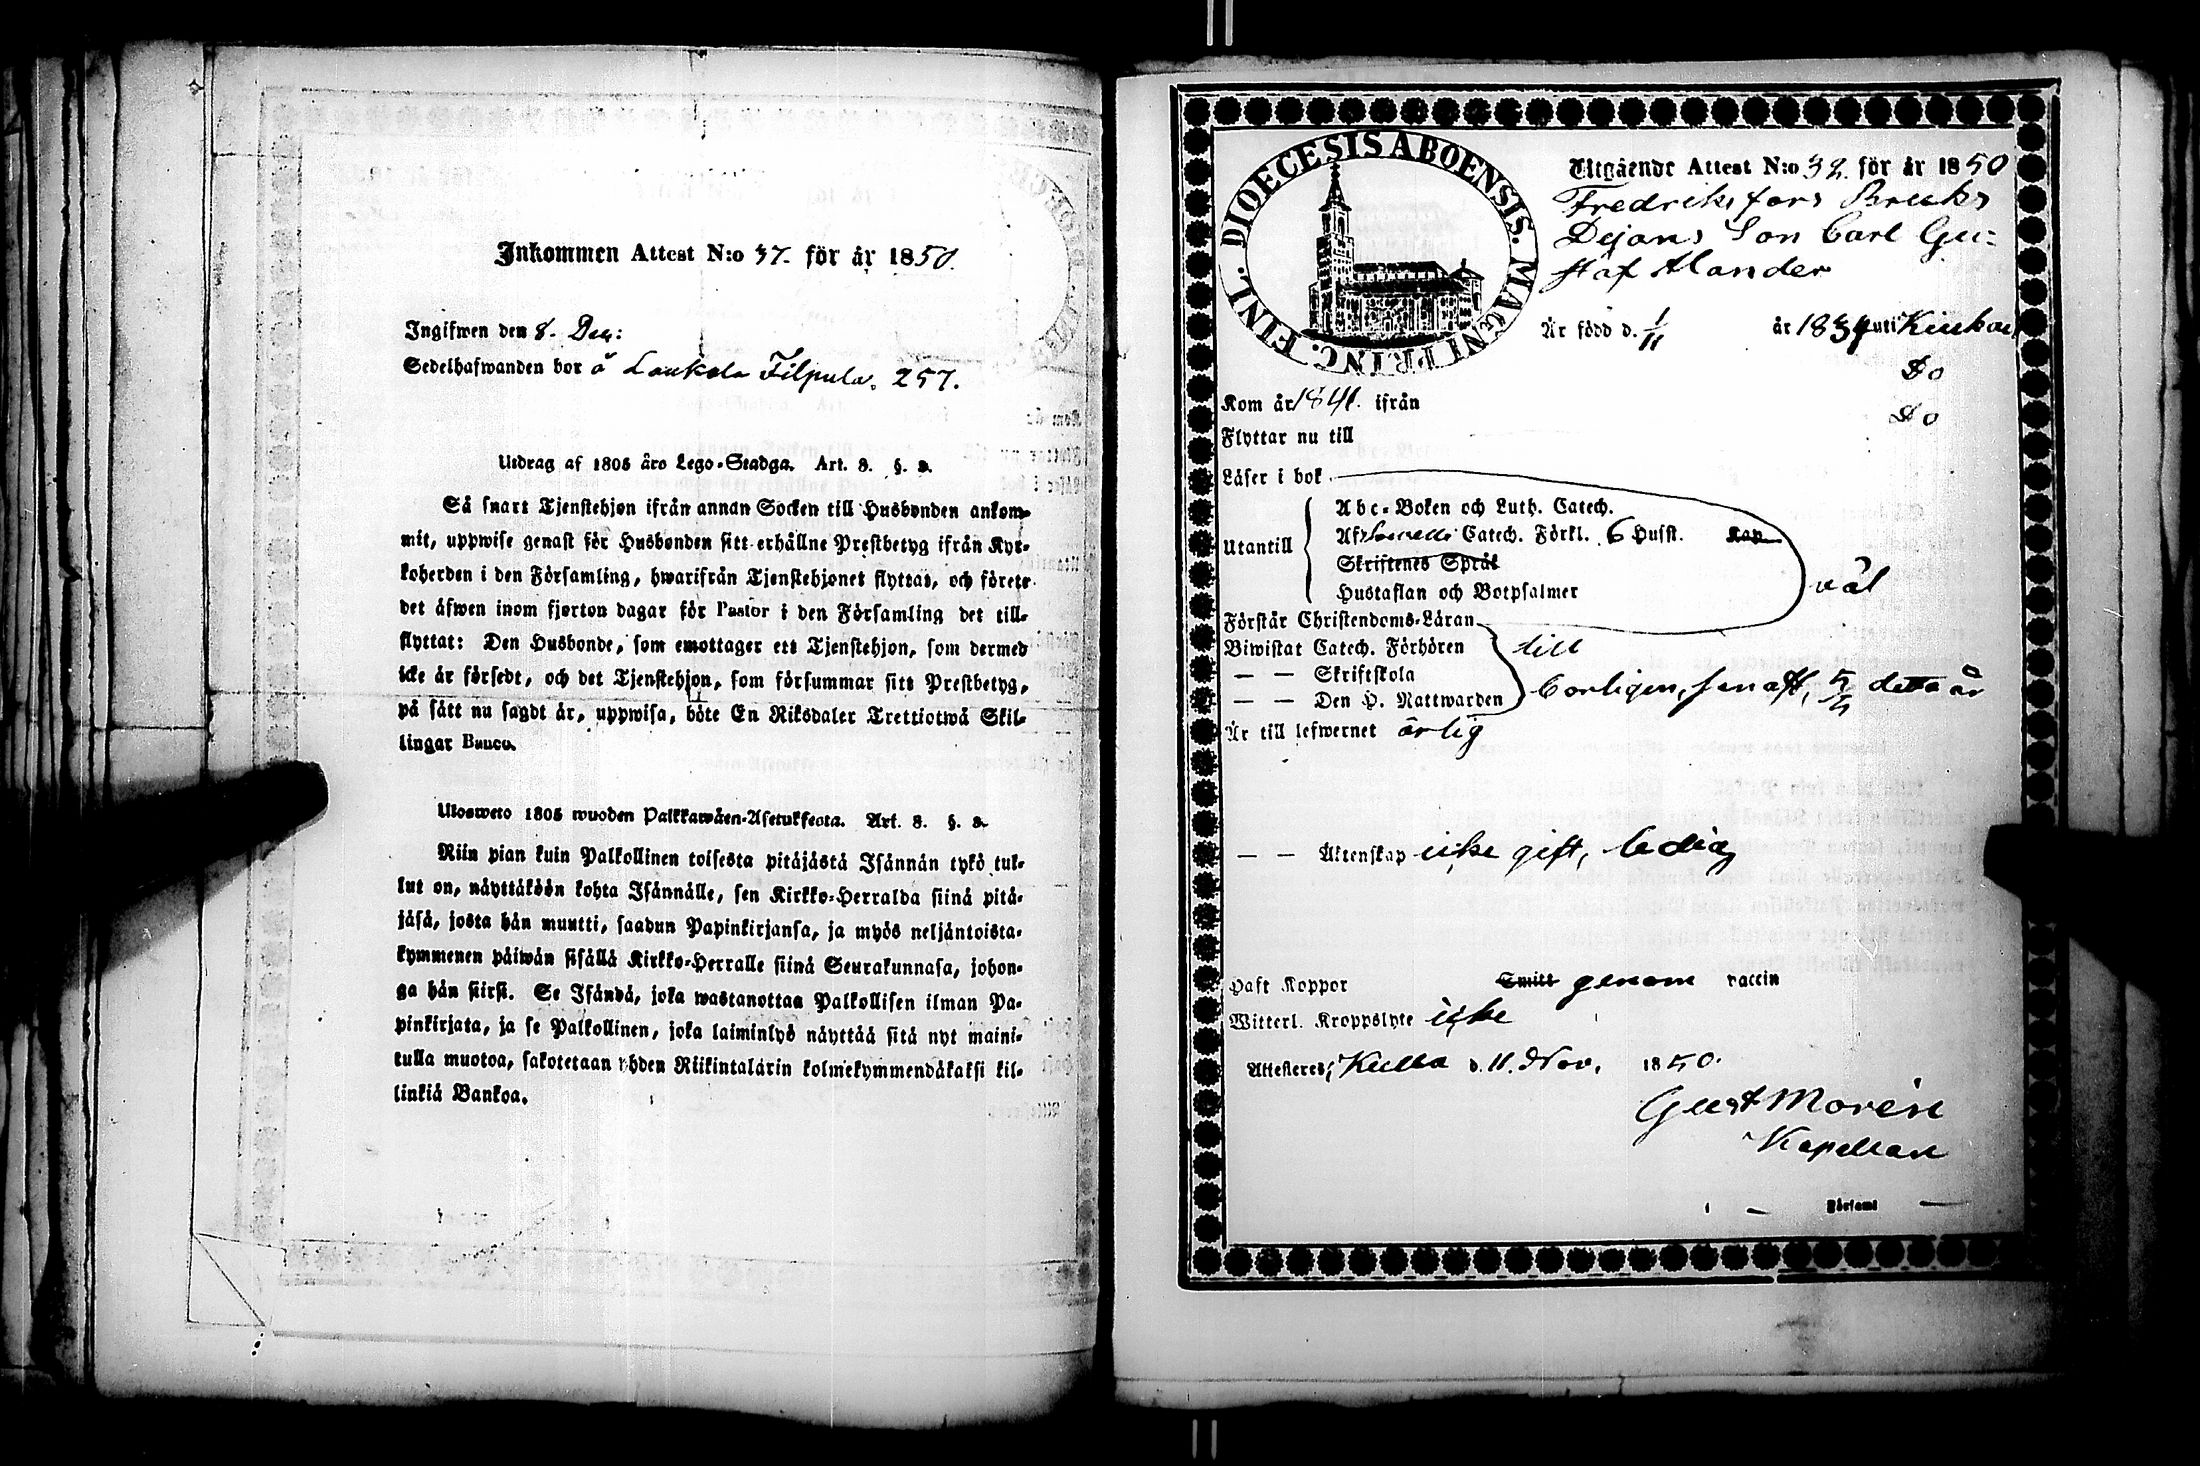 Inkommen Attest N:o 37. för år 1850.
Ingifwen den 8. Dec:
Sedelhafwanden bor å Laukola Filpula. 257.
Utdrag af 1805 åro Lego-Stadga. Art. 8. §. 2.
Så snart Tjenstehjon ifrån annan Socken till Husbonden ankom-
mit, uppwise genast för Husbonden sitt erhållne Prestbetyg ifrån Kyr-
koherden i den Församling, hwarifrån Tjenstehjonet flyttat, och förete
det äfwen inom fjorton dagar för Pastor i den Församling det till-
flyttat: Den Husbonde, som emottager ett Tjenstehjon, som dermed
icke är försedt, och det Tjenstehjon, som försummar sitt Prestbetyg,
på sätt nu sagdt är, uppwisa, böte En Riksdaler Trettiotwå Skil-
lingar Banco.
Ulosweto 1805 wuoden Palkkawäen-Asetuksesta. Art. 8. §. 2.
Niin pian kuin Palkollinen toisesta pitäjästä Isännän tykö tul-
lut on, näyttäköön kohta Isännälle, sen Kirkko-Herralda siinä pitä-
jäsä, josta hän muutti, saadun Papinkirjansa, ja myös neljäntoista-
kymmenen päiwän sisällä Kirkko-Herralle siinä Seurakunnasa, johon-
ga hän siirsi. Se Isändä, joka wastanottaa Palkollisen ilman Pa-
pinkirjata, ja se Palkollinen, joka laiminlyö näyttää sitä nyt maini-
tulla muotoa, sakotetaan yhden Riikintalarin kolmekymmendäkaksi kil-
linkiä Bankoa.
DIOECESIS ABOENSIS. MAGNI PRINC. FINL.
Utgående Attest N:o 32. för år 1850
Fredriksfors Bruks
Dejans Son Carl Gu-
staf Alander
Är född d. 1/11 år 1834 uti Kiukais
Kom år 1841. ifrån Do
Flyttar nu till Do
Läser i bok
Utantill
Abc-Boken och Luth. Catech.
Af Catech. Förkl. 6 Husst. Kap
Skriftenes Språk
Hustaflan och Botpsalmer
väl
Förstår Christendoms-Läran
Biwistat Catech. Förhören
— — Skriftskola
— — Den H. Nattwarden
till
borligen, senast, 5/5 detta år
Är till lefwernet ärlig
— — Äktenskap icke gift, ledig
Haft Koppor Smitt genom vaccin
Witterl. Kroppslyte icke
Attesteres; Kulla d. 11. Nov. 1850.
Gust Morén
Kapellan
Församl